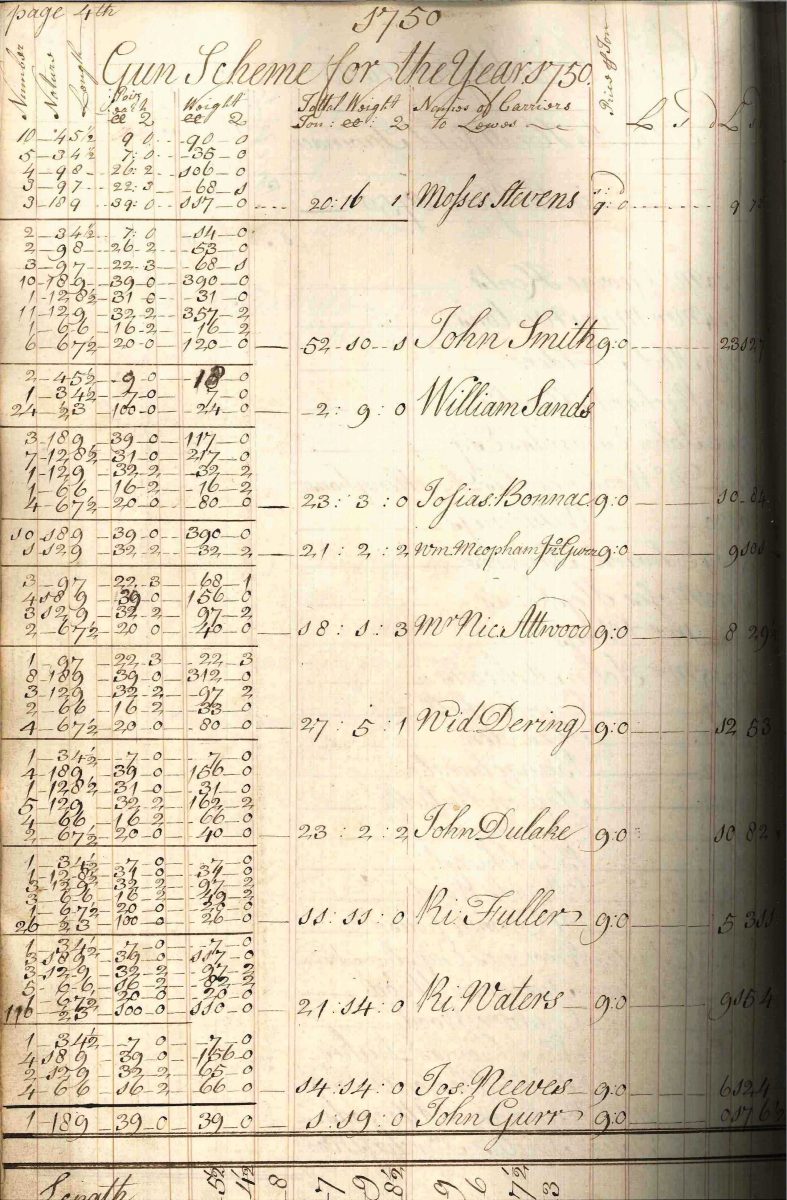 page 4th
1750
Gun Scheme for the Year 1750.
Number Nature Length Pois each cc 2 Weight cc 2 Tottal Weight Ton: cc: 2 Names of Carriers to Lewes Price of Ton L S D L S
10 - 4 5½ 9 0 - 90 - 0
5 - 3 4½ 7: 0 - 35 - 0
4 - 9 8 26: 2 - 106 - 0
3 - 9 7 22: 3 - 68 - 1
3 - 18 9 39: 0 - 117 - 0 20: 16 1 Mosses Stevens 9: 0 9
2 - 3 4½ 7: 0 - 14 - 0
2 - 9 8 26 - 2 - 53 - 0
3 - 9 7 22 - 3 - 68 - 1
10 - 18 9 39 - 0 - 390 - 0
1 - 12 8½ 31 - 0 - 31 - 0
11 - 12 9 32 - 2 - 357 - 2
1 - 6 6 16 - 2 - 16 - 2
6 6 7½ 20 - 0 120 - 0 52 - 10 - 1 John Smith 9: 0 23 12
2 - 4 5½ 9 - 0 18 - 0
1 - 3 4½ 7 - 0 7 - 0
24 - 2 3 100 - 0 24 - 0 2: 9: 0 William Sands
3 - 18 9 39 - 0 - 117 - 0
7 - 12 8½ 31 - 0 - 217 - 0
1 - 12 9 32 - 2 - 32 - 2
1 - 6 6 16 - 2 - 16 - 2
4 - 6 7½ 20 - 0 - 80 - 0 23: 3: 0 Josias Bonnac 9: 0 10 8 4
10 18 9 39 - 0 390 - 0
1 12 9 32 - 2 - 32 - 2 21: 2: 2 Wm. Meopham Jno Gurr 9: 0 9 10
3 - 9 7 22 - 3 - 68 - 1
4 18 9 39 0 156 - 0
3 12 9 32 - 2 - 97 - 2
2 - 6 7½ 20 - 0 - 40 - 0 18: 1: 3 Mr Nic. Attwood 9: 0 8 2 9
1 - 9 7 22 - 3 - 22 - 3
8 18 9 39 - 0 312 - 0
3 - 12 9 32 - 2 - 97 - 2
2 - 6 6 16 - 2 - 33 - 0
4 - 6 7½ 20 - 0 - 80 - 0 27: 5: 1 Wid Dering 9: 0 12 5 3
1 - 3 4½ 7 - 0 - 7 - 0
4 18 9 39 - 0 - 156 - 0
1 - 12 8½ 31 - 0 - 31 - 0
5 12 9 32 - 2 - 162 - 2
4 - 6 6 16 - 2 - 66 - 0
2 - 6 7½ 20 - 0 - 40 - 0 23: 2: 2 John Dulake 9: 0 10 8 2
1 - 3 4½ 7 - 0 - 7 - 0
1 - 12 8½ 31 - 0 - 34 - 0
3 - 12 9 32 - 2 - 97 - 2
3 - 6 6 16 - 2 - 49 - 2
1 - 6 7½ 20 - 0 - 20 - 0
26 2 3 100 - 0 - 26 - 0 11: 11: 0 Ri: Fuller 9: 0 5 3 11
1 - 3 4½ 7 - 0 - 7 - 0
3 - 18 9 39 - 0 - 117 - 0
3 - 12 9 32 - 2 - 97 - 2
5 - 6 6 16 - 2 - 82 - 2
6 7½ 20 - 0 20 - 0
2 3 100 - 0 - 110 - 0 21: 14: 0 Ri. Waters 9: 0 9 15 4
1 - 3 4½ 7 - 0 - 7 - 0
4 18 9 39 - 0 - 156 - 0
2 12 9 32 - 2 - 65 - 0
4 - 6 6 16 - 2 66 - 0 14: 14: 0 Jos. Neeves 9: 0 6 12 4
1 - 18 9 39 - 0 39 - 0 1: 19: 0 John Gurr 9: 0 0 17 6½
Length 5½ 4½ 8 7 9 8½ 9 6 7½ 3